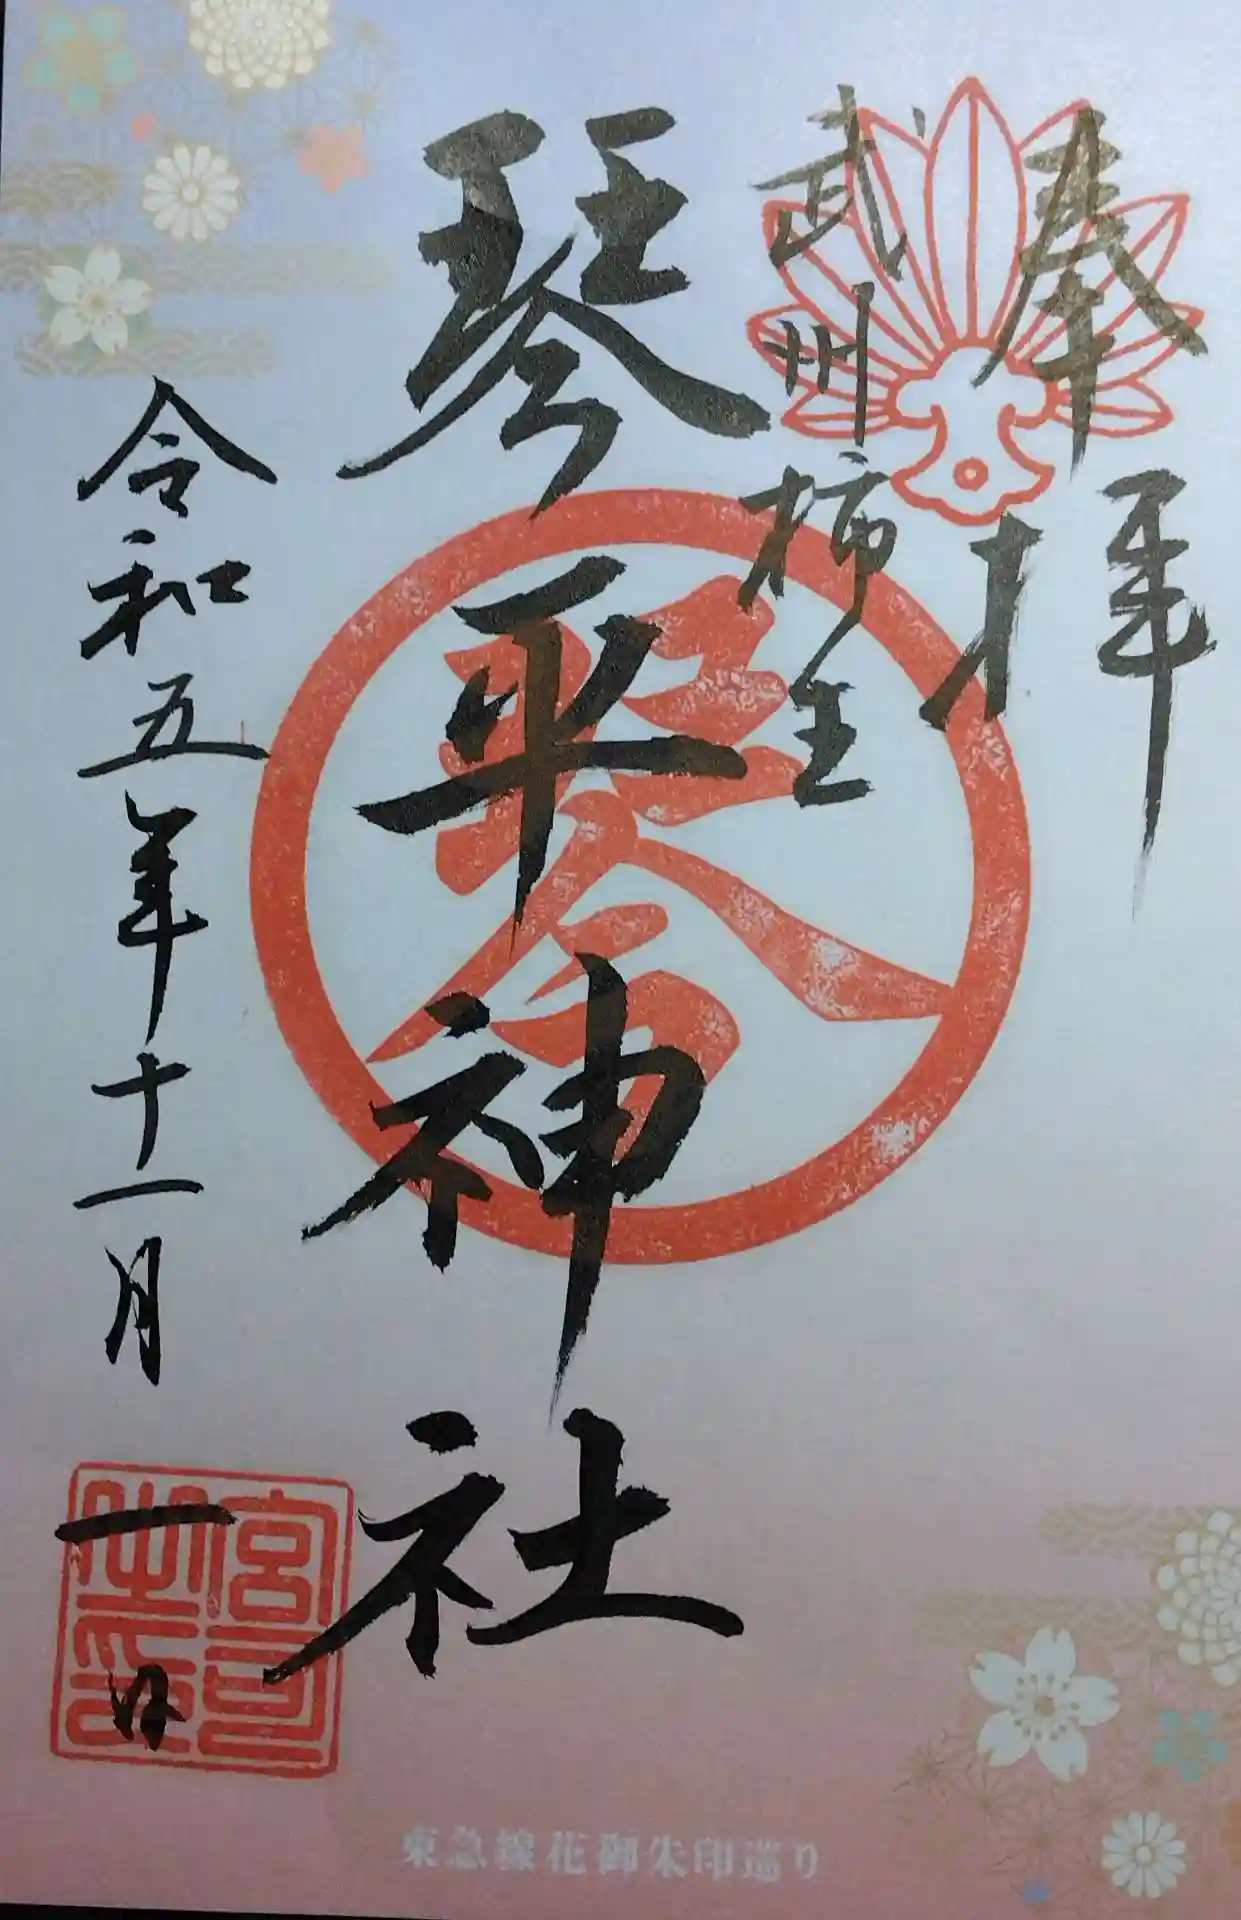 奉拝
武州柿生
琴平神社
琴
令和五年十一月一日
宮司之印
東急線花御朱印巡り